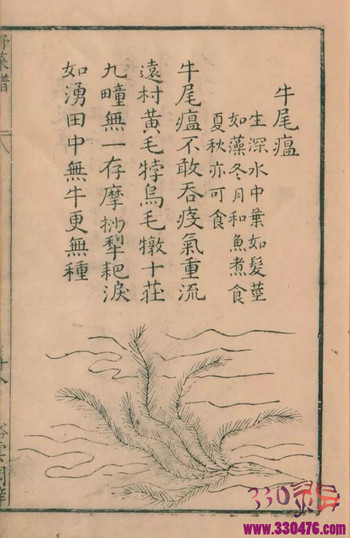 牛尾瘟
生深水中葉如髮莖
如藻冬月和魚煮食
夏秋亦可食
牛尾瘟不敢吞疫氣重流
遠村黃毛㹀烏毛犜十莊
九疃無一存摩挱犁耙淚
如湧田中無牛更無種
野菜譜
330
www.330476.com